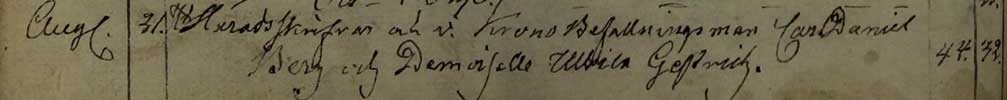 Aug. 31. Häradsskrifvar och v. Krono Befallningsman Carl Daniel
Berg och Demoiselle Ulrica Gestrich. 44. 32.